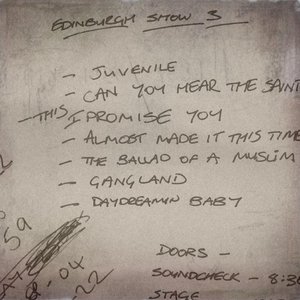 EDINBURGH SHOW 3
- JUVENILE
- CAN YOU HEAR THE SAINT
- THIS I PROMISE YOU
- ALMOST MADE IT THIS TIME
- THE BALLAD OF A MUSLIM
- GANGLAND
- DAYDREAMIN BABY
DOORS -
SOUNDCHECK - 8:30
STAGE
59
04
22